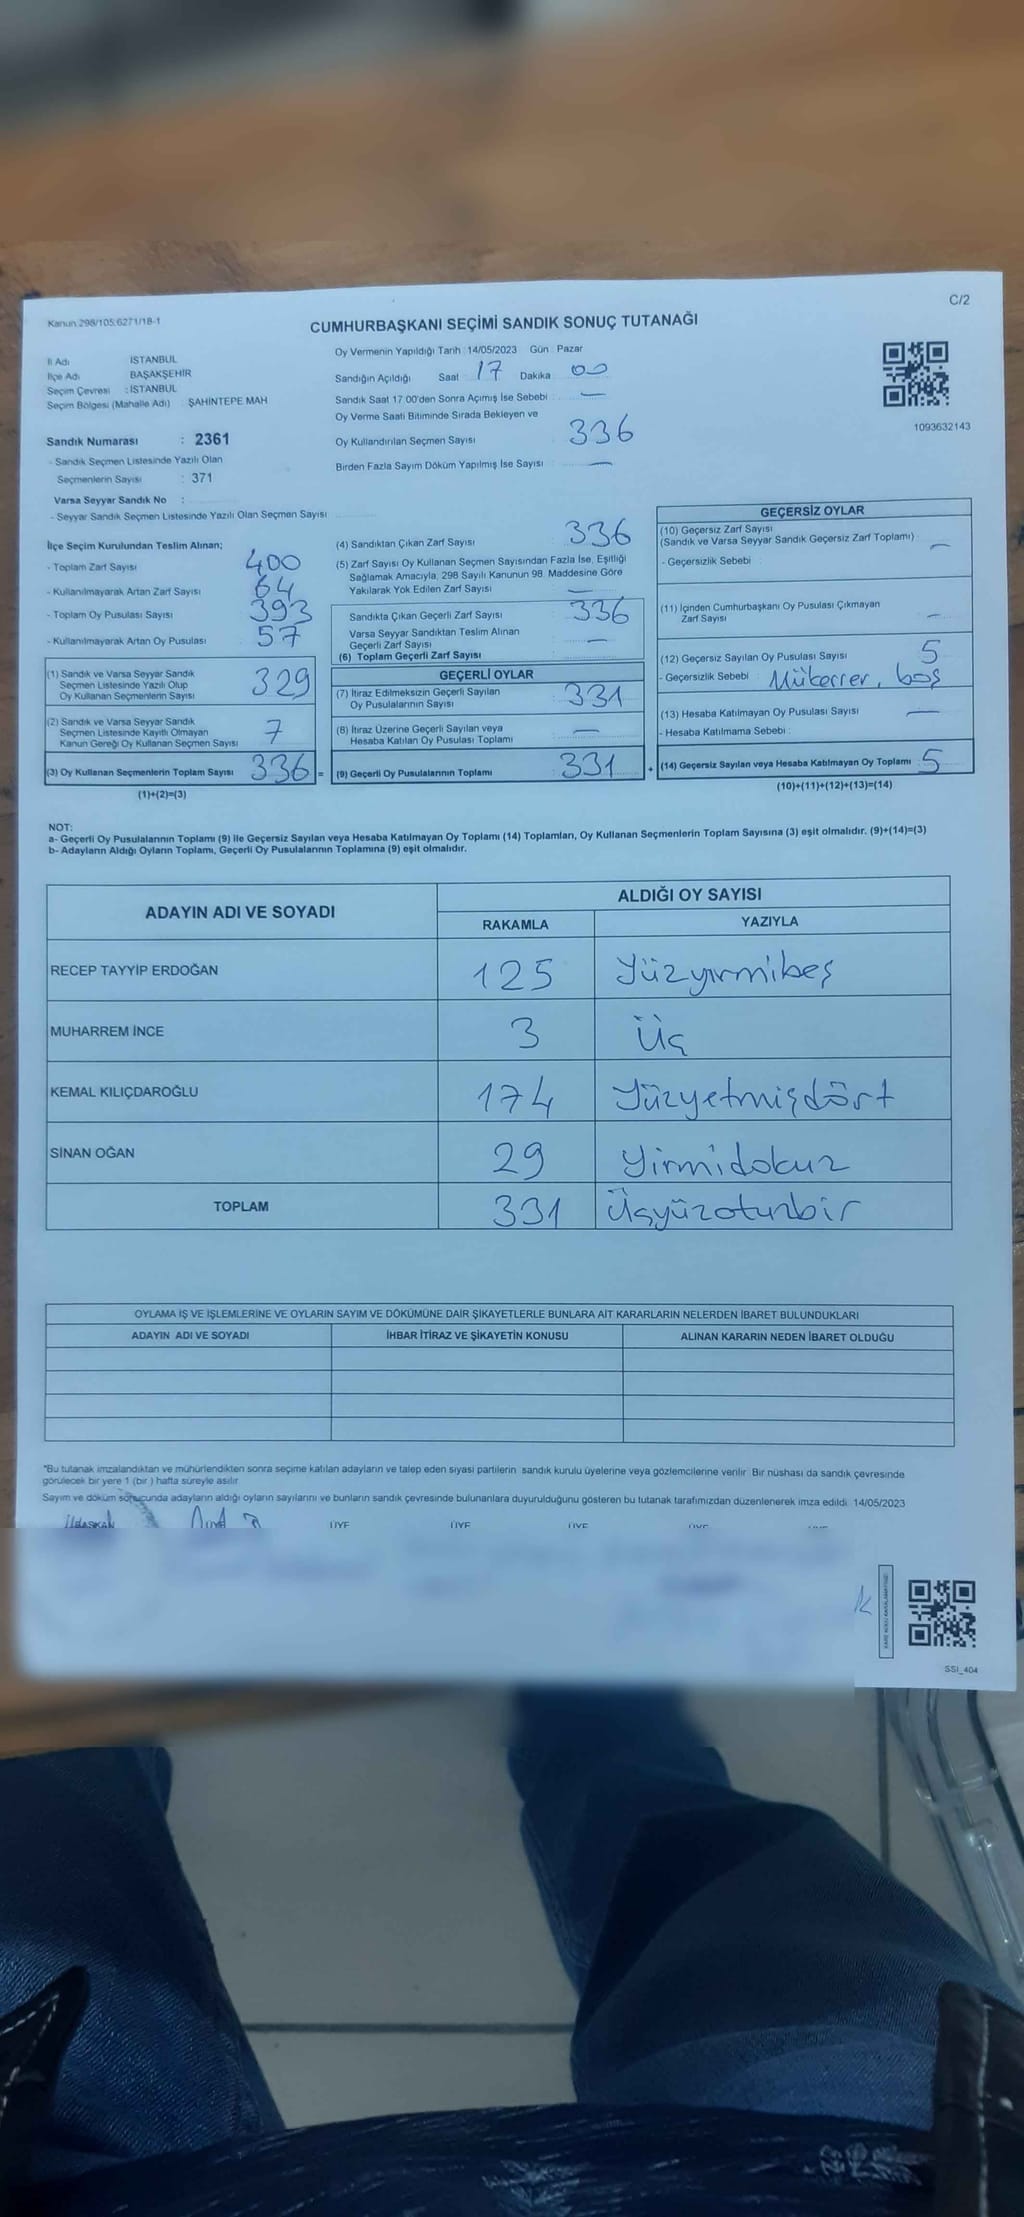 C/2
Kanun:298/105;6271/18-1
CUMHURBAŞKANI SEÇİMİ SANDIK SONUÇ TUTANAĞI
İl Adı : İSTANBUL
İlçe Adı : BAŞAKŞEHİR
Seçim Çevresi : İSTANBUL
Seçim Bölgesi (Mahalle Adı) : ŞAHİNTEPE MAH
Sandık Numarası : 2361
- Sandık Seçmen Listesinde Yazılı Olan
Seçmenlerin Sayısı : 371
Varsa Seyyar Sandık No :
- Seyyar Sandık Seçmen Listesinde Yazılı Olan Seçmen Sayısı
Oy Vermenin Yapıldığı Tarih :14/05/2023 Gün : Pazar
Sandığın Açıldığı Saat : 17 Dakika : 00
Sandık Saat 17:00'den Sonra Açılmış İse Sebebi : —
Oy Verme Saati Bitiminde Sırada Bekleyen ve
Oy Kullandırılan Seçmen Sayısı 336
Birden Fazla Sayım Döküm Yapılmış İse Sayısı : —
1093632143
İlçe Seçim Kurulundan Teslim Alınan;
- Toplam Zarf Sayısı 400
- Kullanılmayarak Artan Zarf Sayısı 64
- Toplam Oy Pusulası Sayısı 393
- Kullanılmayarak Artan Oy Pusulası 57
(1) Sandık ve Varsa Seyyar Sandık
Seçmen Listesinde Yazılı Olup
Oy Kullanan Seçmenlerin Sayısı 329
(2) Sandık ve Varsa Seyyar Sandık
Seçmen Listesinde Kayıtlı Olmayan
Kanun Gereği Oy Kullanan Seçmen Sayısı 7
(3) Oy Kullanan Seçmenlerin Toplam Sayısı 336 =
(1)+(2)=(3)
(4) Sandıktan Çıkan Zarf Sayısı : 336
(5) Zarf Sayısı Oy Kullanan Seçmen Sayısından Fazla İse, Eşitliği
Sağlamak Amacıyla, 298 Sayılı Kanunun 98. Maddesine Göre
Yakılarak Yok Edilen Zarf Sayısı : —
Sandıkta Çıkan Geçerli Zarf Sayısı : 336
Varsa Seyyar Sandıktan Teslim Alınan
Geçerli Zarf Sayısı : —
(6) Toplam Geçerli Zarf Sayısı
GEÇERLİ OYLAR
(7) İtiraz Edilmeksizin Geçerli Sayılan
Oy Pusulalarının Sayısı : 331
(8) İtiraz Üzerine Geçerli Sayılan veya
Hesaba Katılan Oy Pusulası Toplamı : —
(9) Geçerli Oy Pusulalarının Toplamı : 331 +
GEÇERSİZ OYLAR
(10) Geçersiz Zarf Sayısı
(Sandık ve Varsa Seyyar Sandık Geçersiz Zarf Toplamı) : —
- Geçersizlik Sebebi :
(11) İçinden Cumhurbaşkanı Oy Pusulası Çıkmayan
Zarf Sayısı : —
(12) Geçersiz Sayılan Oy Pusulası Sayısı : 5
- Geçersizlik Sebebi : Mükerrer, boş
(13) Hesaba Katılmayan Oy Pusulası Sayısı : —
- Hesaba Katılmama Sebebi :
(14) Geçersiz Sayılan veya Hesaba Katılmayan Oy Toplamı : 5
(10)+(11)+(12)+(13)=(14)
NOT:
a- Geçerli Oy Pusulalarının Toplamı (9) ile Geçersiz Sayılan veya Hesaba Katılmayan Oy Toplamı (14) Toplamları, Oy Kullanan Seçmenlerin Toplam Sayısına (3) eşit olmalıdır. (9)+(14)=(3)
b- Adayların Aldığı Oyların Toplamı, Geçerli Oy Pusulalarının Toplamına (9) eşit olmalıdır.
ADAYIN ADI VE SOYADI ALDIĞI OY SAYISI
RAKAMLA YAZIYLA
RECEP TAYYİP ERDOĞAN 125 Yüzyirmibeş
MUHARREM İNCE 3 Üç
KEMAL KILIÇDAROĞLU 174 Yüzyetmişdört
SİNAN OĞAN 29 Yirmidokuz
TOPLAM 331 Üçyüzotuzbir
OYLAMA İŞ VE İŞLEMLERİNE VE OYLARIN SAYIM VE DÖKÜMÜNE DAİR ŞİKAYETLERLE BUNLARA AİT KARARLARIN NELERDEN İBARET BULUNDUKLARI
ADAYIN ADI VE SOYADI İHBAR İTİRAZ VE ŞİKAYETİN KONUSU ALINAN KARARIN NEDEN İBARET OLDUĞU
*Bu tutanak imzalandıktan ve mühürlendikten sonra seçime katılan adayların ve talep eden siyasi partilerin sandık kurulu üyelerine veya gözlemcilerine verilir. Bir nüshası da sandık çevresinde
görülecek bir yere 1 (bir ) hafta süreyle asılır.
Sayım ve döküm sonucunda adayların aldığı oyların sayılarını ve bunların sandık çevresinde bulunanlara duyurulduğunu gösteren bu tutanak tarafımızdan düzenlenerek imza edildi. 14/05/2023
BAŞKAN ÜYE ÜYE ÜYE ÜYE
SSI_404